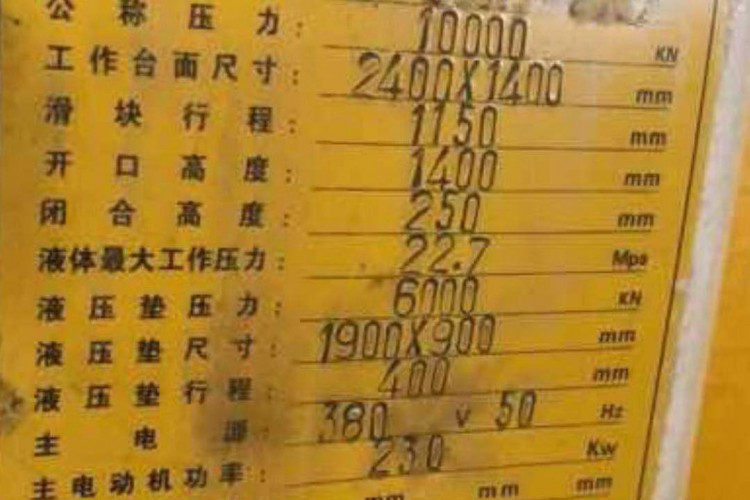 公称压力: 10000 KN
工作台面尺寸: 2400X1400 mm
滑块行程: 1150 mm
开口高度: 1400 mm
闭合高度: 250 mm
液体最大工作压力: 22.7 Mpa
液压垫压力: 6000 KN
液压垫尺寸: 1900X900 mm
液压垫行程: 400 mm
主电源: 380 v 50 Hz
主电动机功率: 230 Kw
mm mm mm